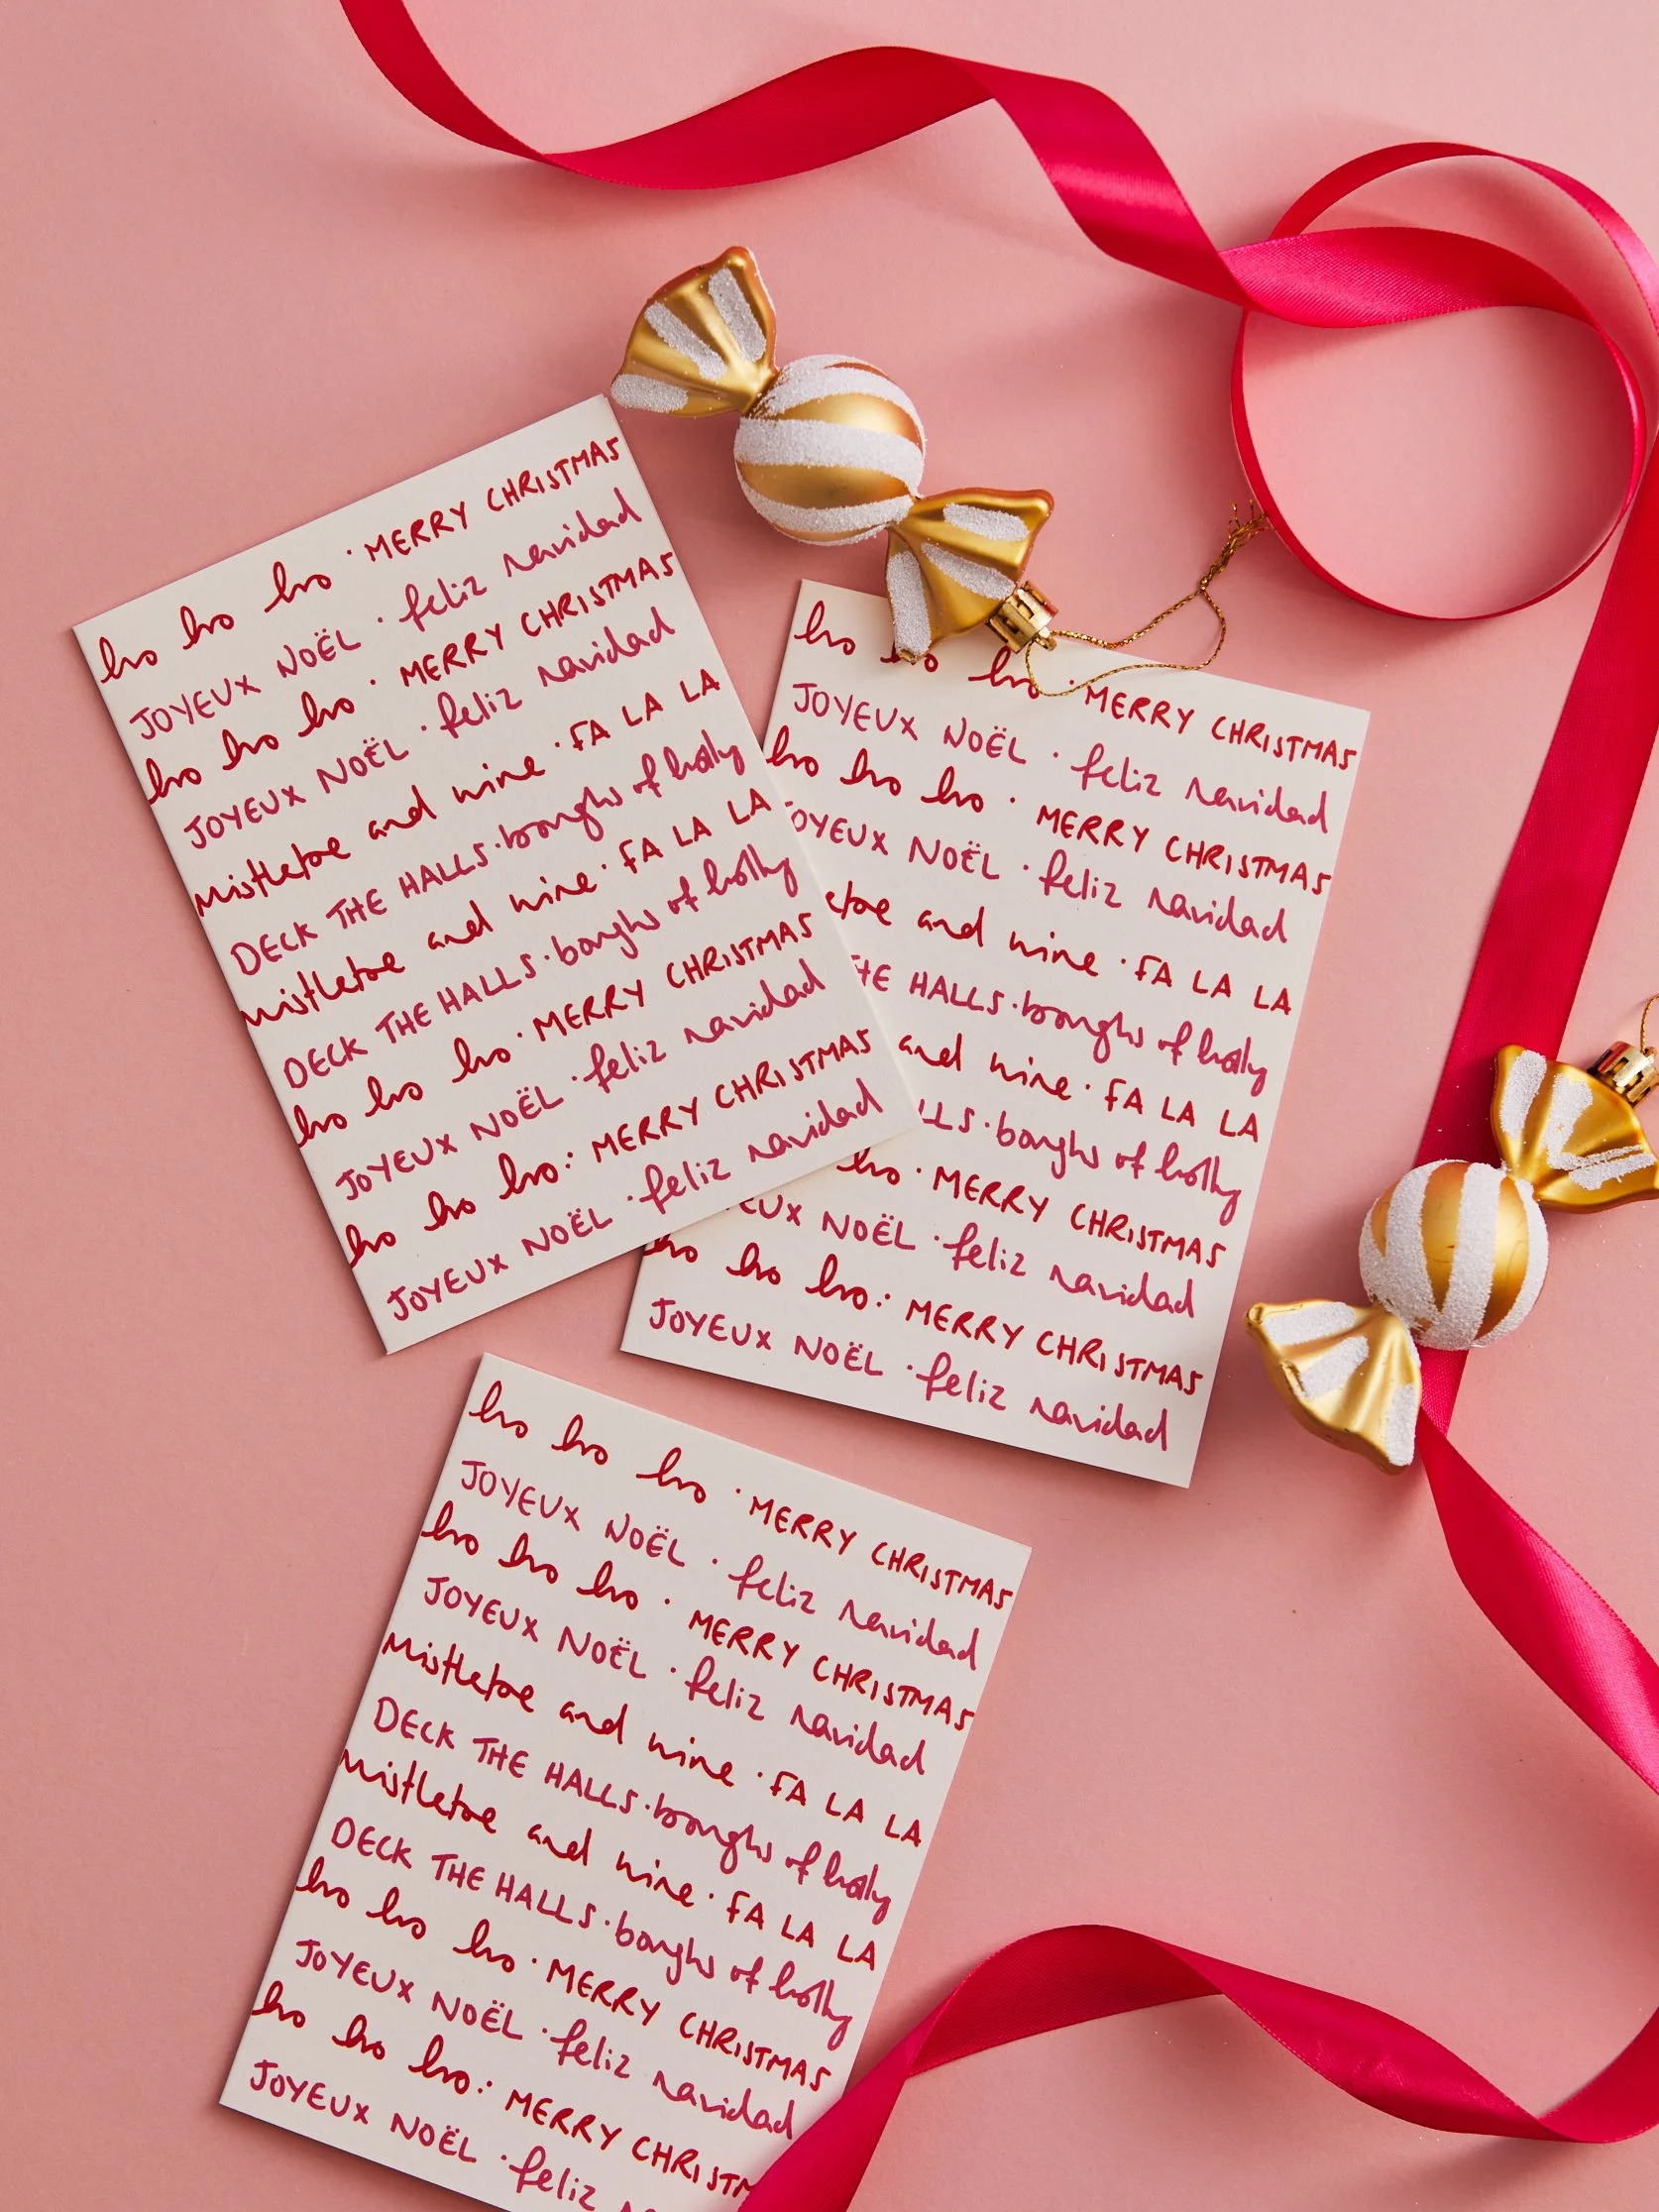 ho ho ho · MERRY CHRISTMAS
JOYEUX NOËL · feliz navidad
ho ho ho · MERRY CHRISTMAS
JOYEUX NOËL · feliz navidad
mistletoe and wine · FA LA LA
DECK THE HALLS · boughs of holly
mistletoe and wine · FA LA LA
DECK THE HALLS · boughs of holly
ho ho ho · MERRY CHRISTMAS
JOYEUX NOËL · feliz navidad
ho ho ho : MERRY CHRISTMAS
JOYEUX NOËL · feliz navidad
ho ho ho · MERRY CHRISTMAS
JOYEUX NOËL · feliz navidad
ho ho ho · MERRY CHRISTMAS
OYEUX NOËL · feliz navidad
etoe and wine · FA LA LA
HE HALLS · boughs of holly
and wine · FA LA LA
LLS · boughs of holly
ho · MERRY CHRISTMAS
EUX NOËL · feliz navidad
ho ho ho : MERRY CHRISTMAS
JOYEUX NOËL · feliz navidad
ho ho ho · MERRY CHRISTMAS
JOYEUX NOËL · feliz navidad
ho ho ho · MERRY CHRISTMAS
JOYEUX NOËL · feliz navidad
mistletoe and wine · FA LA LA
DECK THE HALLS · boughs of holly
mistletoe and wine · FA LA LA
DECK THE HALLS · boughs of holly
ho ho ho · MERRY CHRISTMAS
JOYEUX NOËL · feliz navidad
ho ho ho : MERRY CHRISTM
JOYEUX NOËL · feliz na